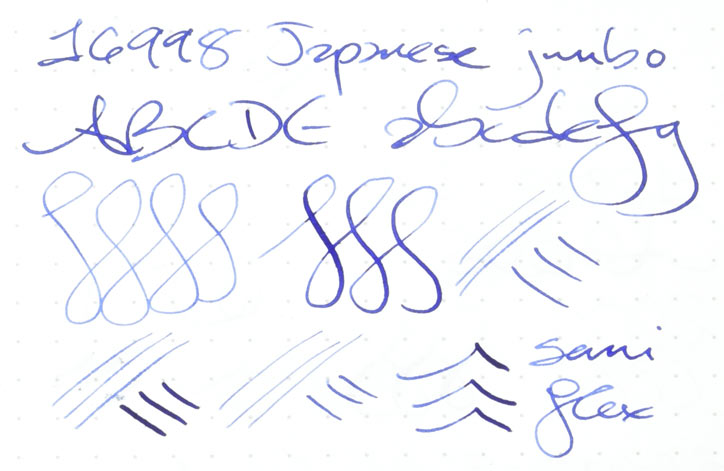 16998 Japanese jumbo
ABCDE abcdefg
semi
flex